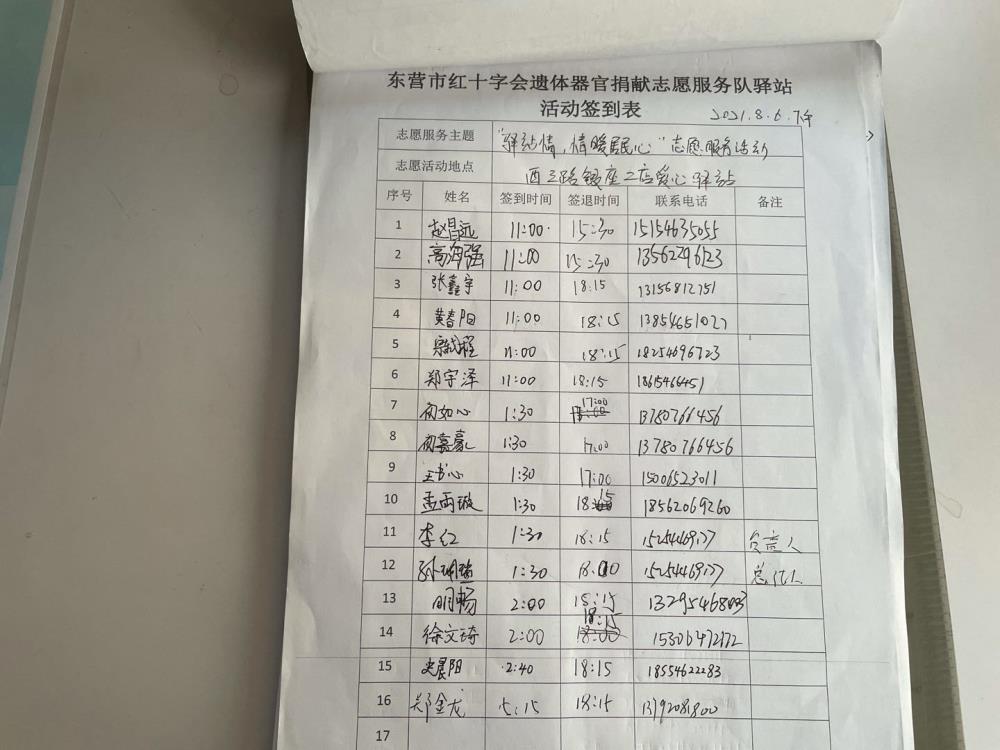 东营市红十字会遗体器官捐献志愿服务队驿站
活动签到表 2021.8.6.下午
志愿服务主题 "驿站情,情暖民心"志愿服务活动
志愿活动地点 西三路银座二店爱心驿站
序号 姓名 签到时间 签退时间 联系电话 备注
1 赵昌远 11:00 15:30 15154635055
2 高海强 11:00 15:30 13562796123
3 张鑫宇 11:00 18:15 13156812751
4 黄春阳 11:00 18:15 13854651027
5 11:00 18:15 18254696723
6 郑宇泽 11:00 18:15 18615466451
7 初如心 1:30 17:00 13780766456
8 初嘉豪 1:30 17:00 13780766456
9 王书心 1:30 17:00 15006523011
10 孟雨璇 1:30 18:15 18562069260
11 李红 1:30 18:15 15254469177 负责人
12 1:30 18:00 15254469177
13 明畅 2:00 18:15
14 徐文琦 2:00 18:15 15306472172
15 史晨阳 2:40 18:15 18554622283
16 郑金龙 5:15 18:15
17